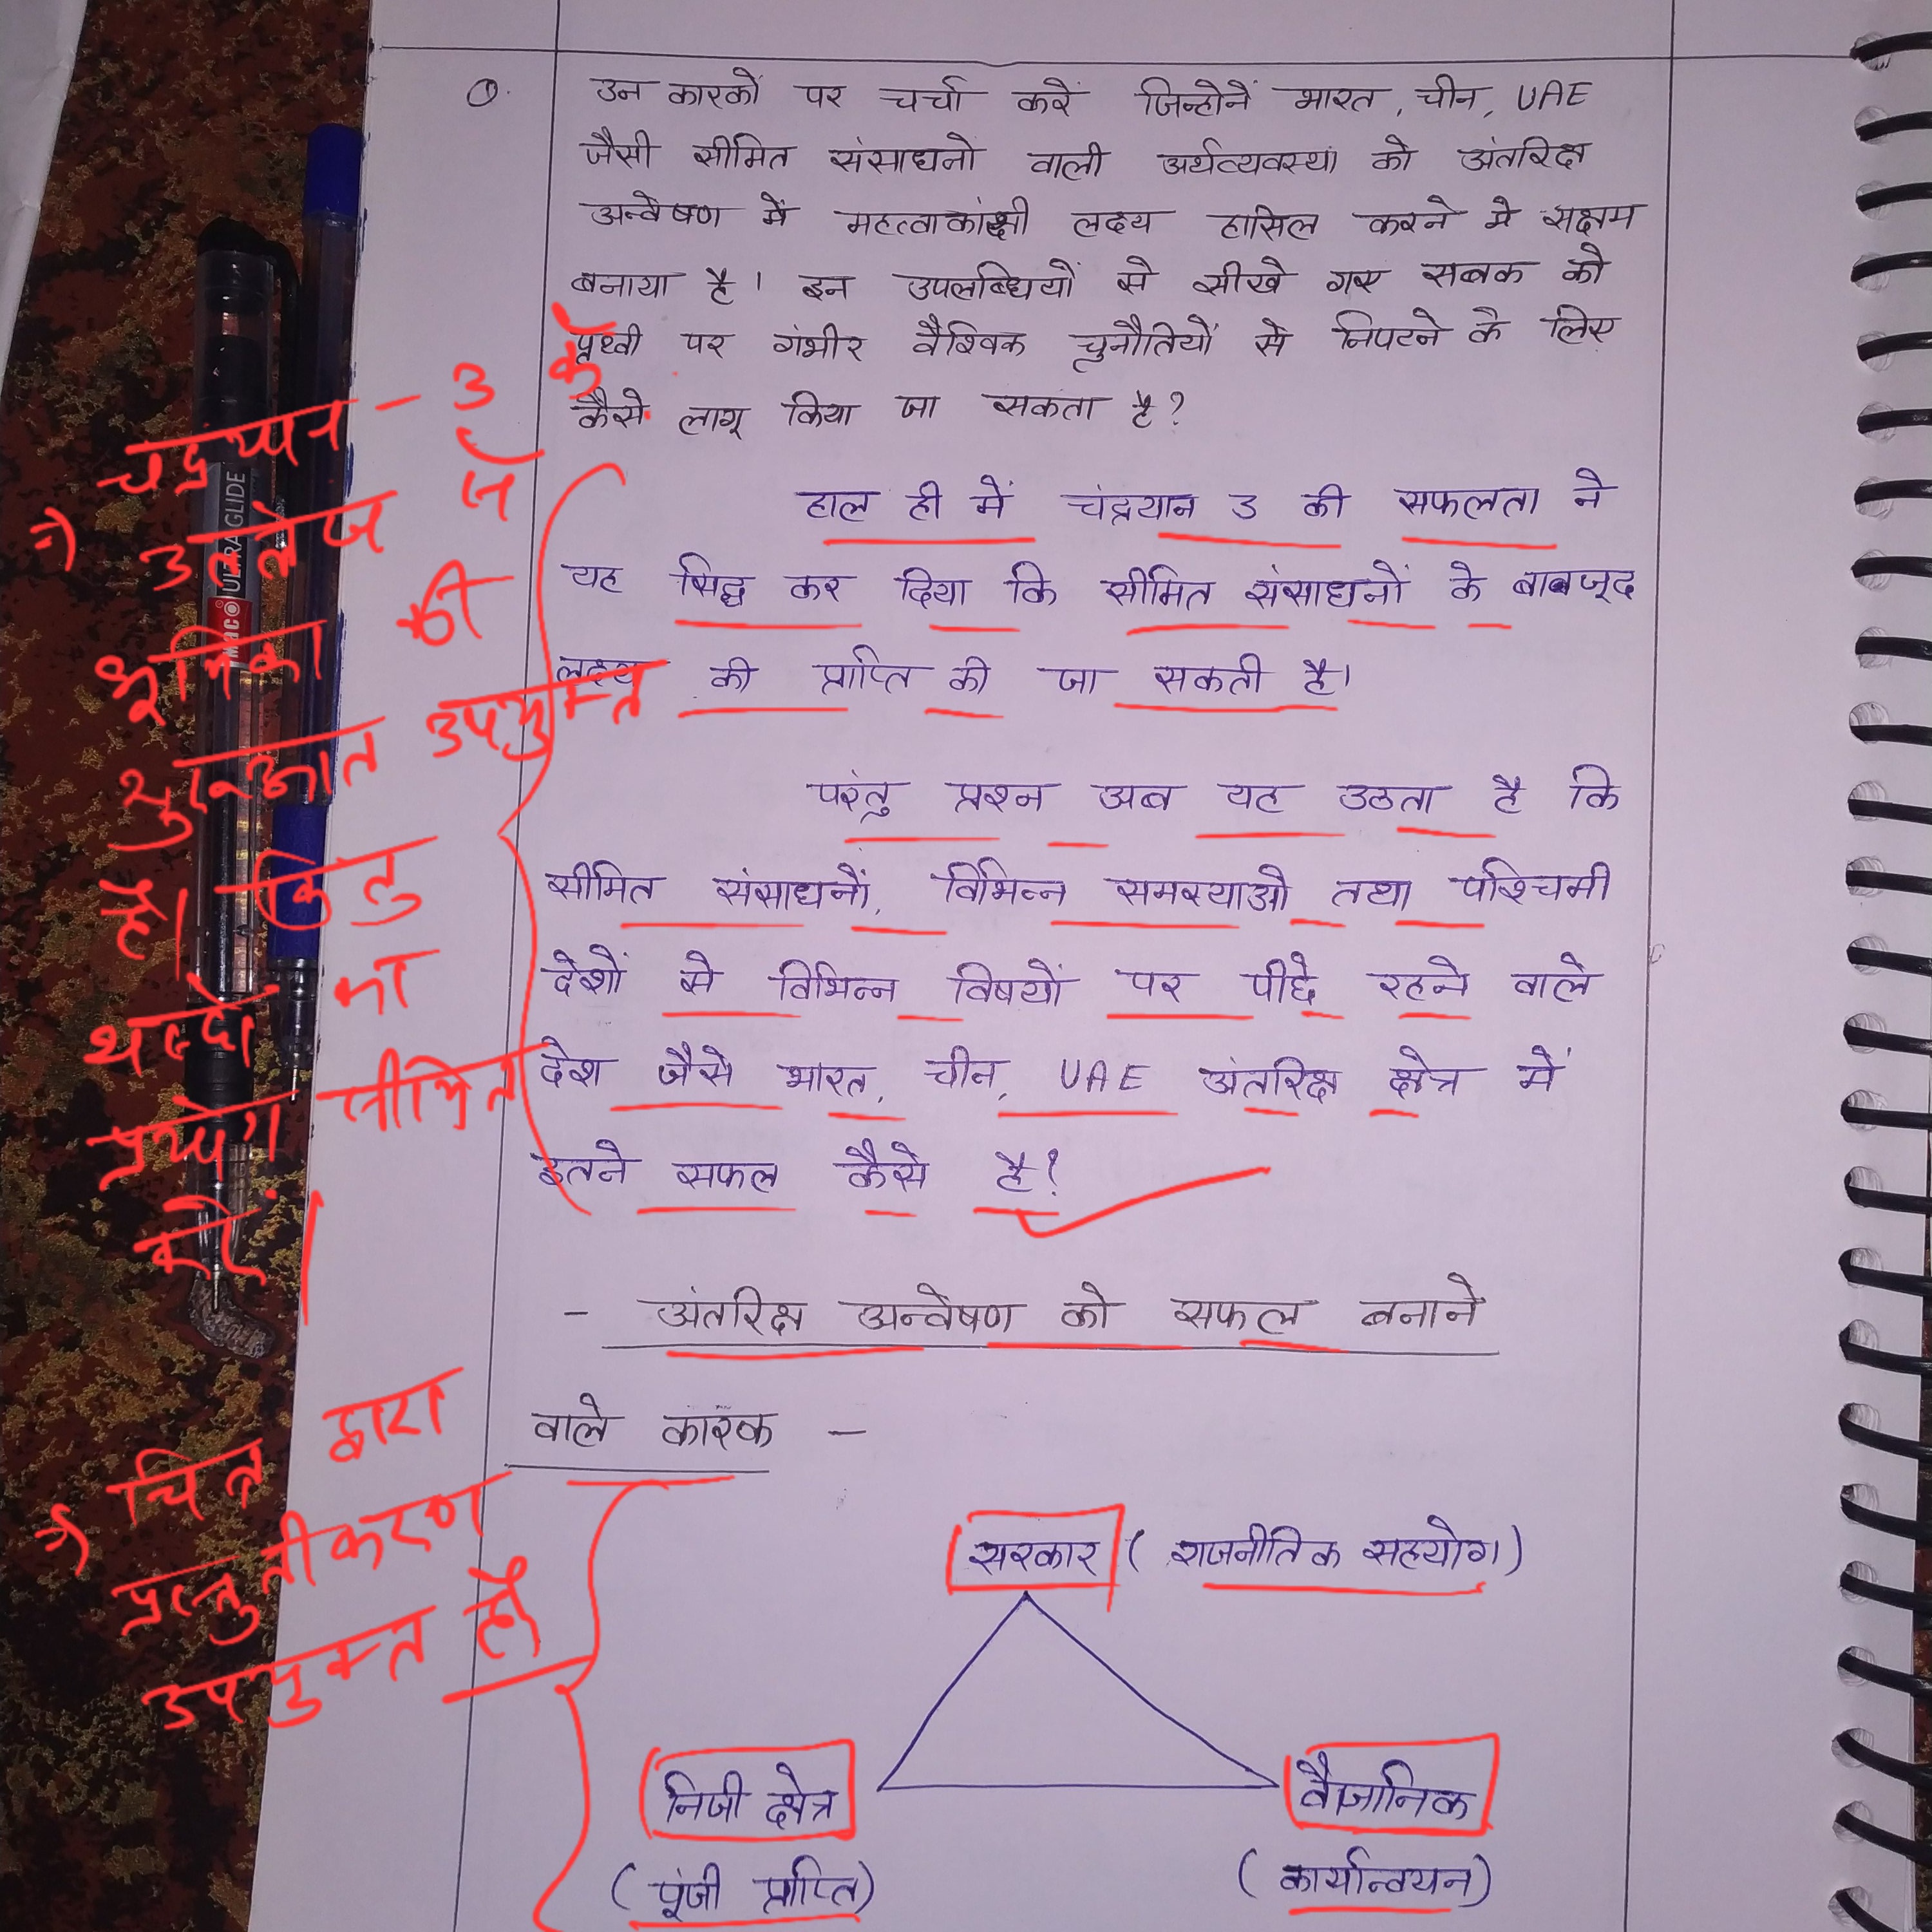 Q. उन कारकों पर चर्चा करें जिन्होनें भारत, चीन, UAE
जैसी सीमित संसाधनो वाली अर्थव्यवस्था को अंतरिक्ष
अन्वेषण में महत्वाकांक्षी लक्ष्य हासिल करने मे सक्षम
बनाया है। इन उपलब्धियों से सीखे गए सबक को
पृथ्वी पर गंभीर वैश्विक चुनौतियों से निपटने के लिए
कैसे लागू किया जा सकता है?
हाल ही में चंद्रयान 3 की सफलता ने
यह सिद्ध कर दिया कि सीमित संसाधनों के बावजूद
लक्ष्य की प्राप्ति की जा सकती है।
परंतु प्रश्न अब यह उठता है कि
सीमित संसाधनों, विभिन्न समस्याओ तथा पश्चिमी
देशों से विभिन्न विषयों पर पीछे रहने वाले
देश जैसे भारत, चीन, UAE अंतरिक्ष क्षेत्र में
इतने सफल कैसे है?
- अंतरिक्ष अन्वेषण को सफल बनाने
वाले कारक -
सरकार (राजनीतिक सहयोग)
निजी क्षेत्र
(पूंजी प्राप्ति)
वैज्ञानिक
(कार्यान्वयन)
चंद्रयान - 3 के
=> उल्लेख से
भूमिका की
शुरुआत उपयुक्त
है। किंतु
शब्दों का
प्रयोग सीमित
करें।
=> चित्र द्वारा
प्रस्तुतीकरण
उपयुक्त है
MacO ULTRAGLIDE